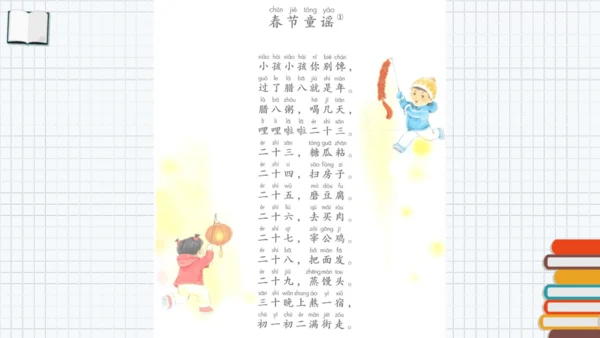 chūn jié tóng yáo
春节童谣①
xiǎo hái xiǎo hái nǐ bié chán
小孩小孩你别馋，
guò le là bā jiù shì nián
过了腊八就是年。
là bā zhōu hē jǐ tiān
腊八粥，喝几天，
lī lī lā lā èr shí sān
哩哩啦啦二十三。
èr shí sān táng guā zhān
二十三，糖瓜粘。
èr shí sì sǎo fáng zi
二十四，扫房子。
èr shí wǔ mò dòu fu
二十五，磨豆腐。
èr shí liù qù mǎi ròu
二十六，去买肉。
èr shí qī zǎi gōng jī
二十七，宰公鸡。
èr shí bā bǎ miàn fā
二十八，把面发。
èr shí jiǔ zhēng mán tou
二十九，蒸馒头。
sān shí wǎn shang áo yì xiǔ
三十晚上熬一宿，
chū yī chū èr mǎn jiē zǒu
初一初二满街走。